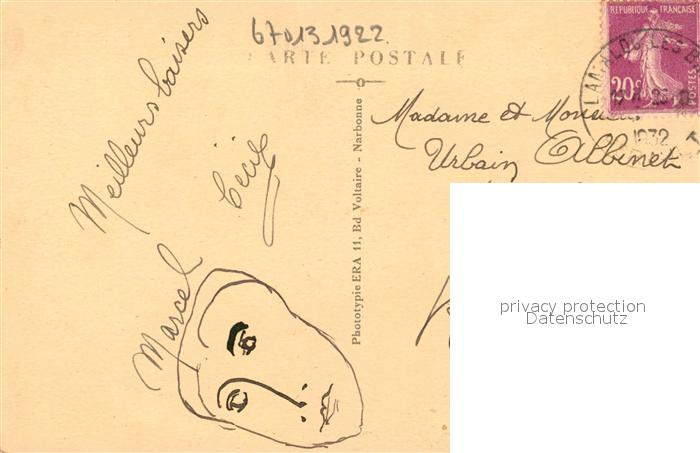 670131922
CARTE POSTALE
RÉPUBLIQUE FRANÇAISE
20c
POSTES
LAMALOU-LES-B
1932
Meilleurs baisers
Cécile
Marcel
Phototypie ERA 11, Bd Voltaire - Narbonne
Madame et Monsieur
Urbain Albinet
privacy protection
Datenschutz